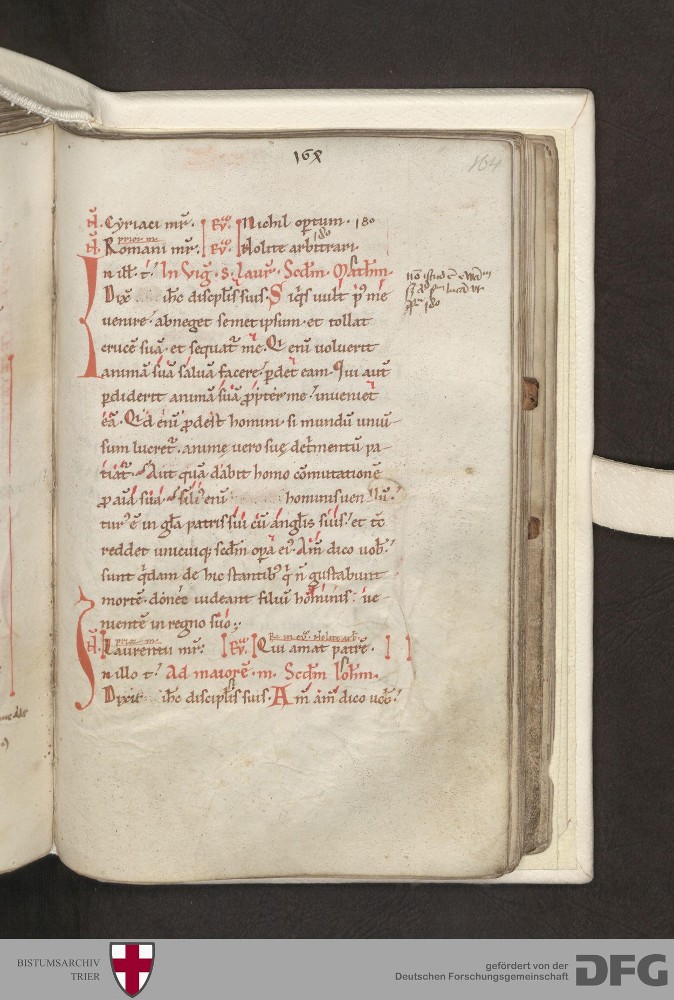 164
N. Cyriaci mr̄. Ev̄. Nichil optum. 180
prior m̄.
N. Romani mr̄. Ev̄. Nolite arbitrari 180
n ill. t̄. In Viḡ. s. Laur̄. Scd̄m. Math̄m.
Dix̄ ih̄c discipl̄is suis. S iq̄s vult p̄ me
venire. abneget semetipsum. et tollat
crucē suā. et sequat̄ me. Qi enī voluerit
animā suā saluā facere. pdet eam. Qui aut̄
pdiderit animā suā pp̄ter me. inueniet
eā. Qid enī pdest homini. si mundū uniu
sum lucret̄. anime uero sue det̄mentū pa-
tiat̄. Aut quā dabit homo cōmutationē
p aīa sua. fili' enī hominis uen
tur' ē in gl̄a patris sui cū angl̄is suis. et tc̄
reddet unicuiq; scd̄m opa ei'. Am̄ dico uob̄.
sunt q̄dam de hic stantib' q̄ n̄ gustabunt
mortē. donec uideant filiū hominis. ue-
nientē in regno suo.
prior m̄.
N. Laurentii mr̄. Ev̄. Qui amat patrē.
n illo t̄. Ad maiorē. m̄. Scd̄m Ioh̄m.
Dixit ih̄c discipl̄is suis. Am̄ am̄ dico uob̄.
BISTUMSARCHIV
TRIER
gefördert von der
Deutschen Forschungsgemeinschaft
DFG